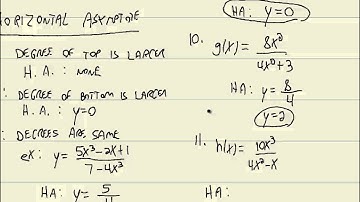 HORIZONTAL ASYMPTOTE
DEGREE OF TOP IS LARGER
H.A.: NONE
: DEGREE OF BOTTOM IS LARGER
H.A.: y=0
: DEGREES ARE SAME
ex: y = (5x³-2x+1)/(7-4x³)
HA: y = 5/4
HA: y=0
10. g(x) = 8x²/(4x²+3)
HA: y = 8/4
y=2
11. h(x) = 10x³/(4x²-x)
HA: